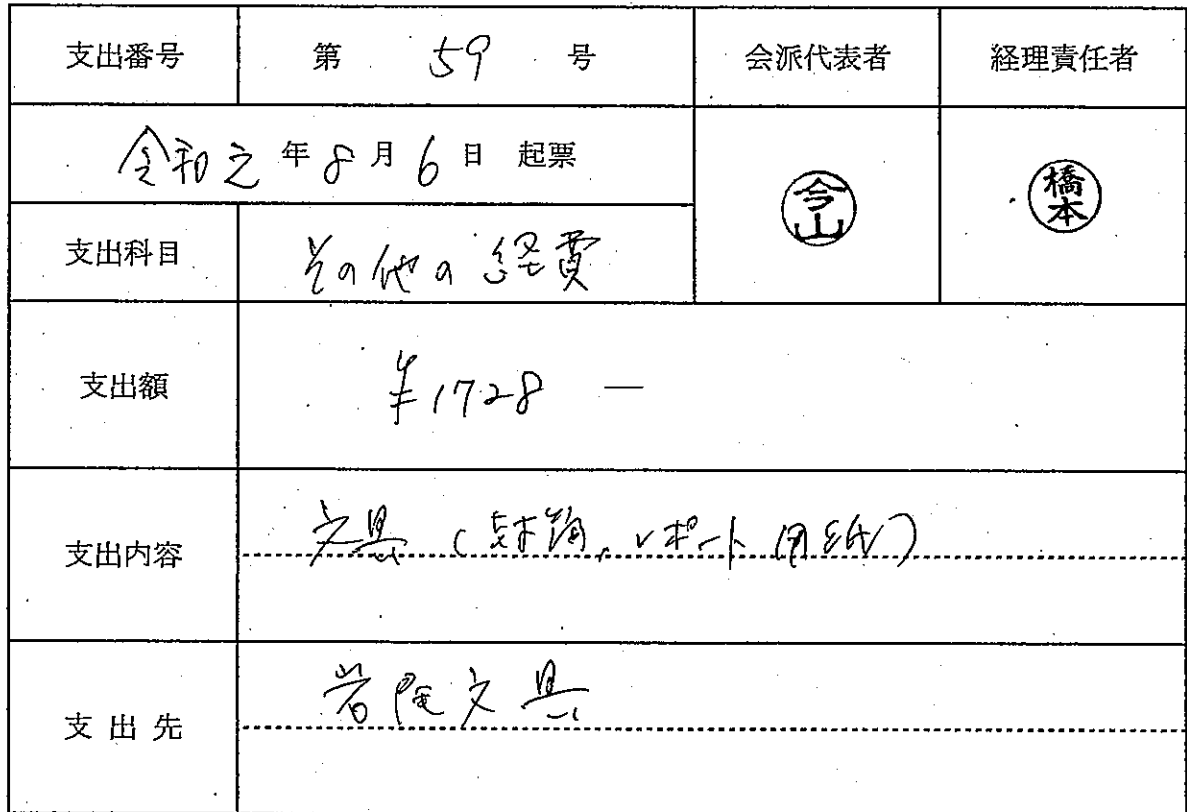 支出番号 第 59 号 会派代表者 経理責任者
令和元年8月6日 起票
今山 橋本
支出科目 その他の経費
支出額 ¥1728 ―
支出内容 文具(封筒、レポート用紙)
支出先 文具